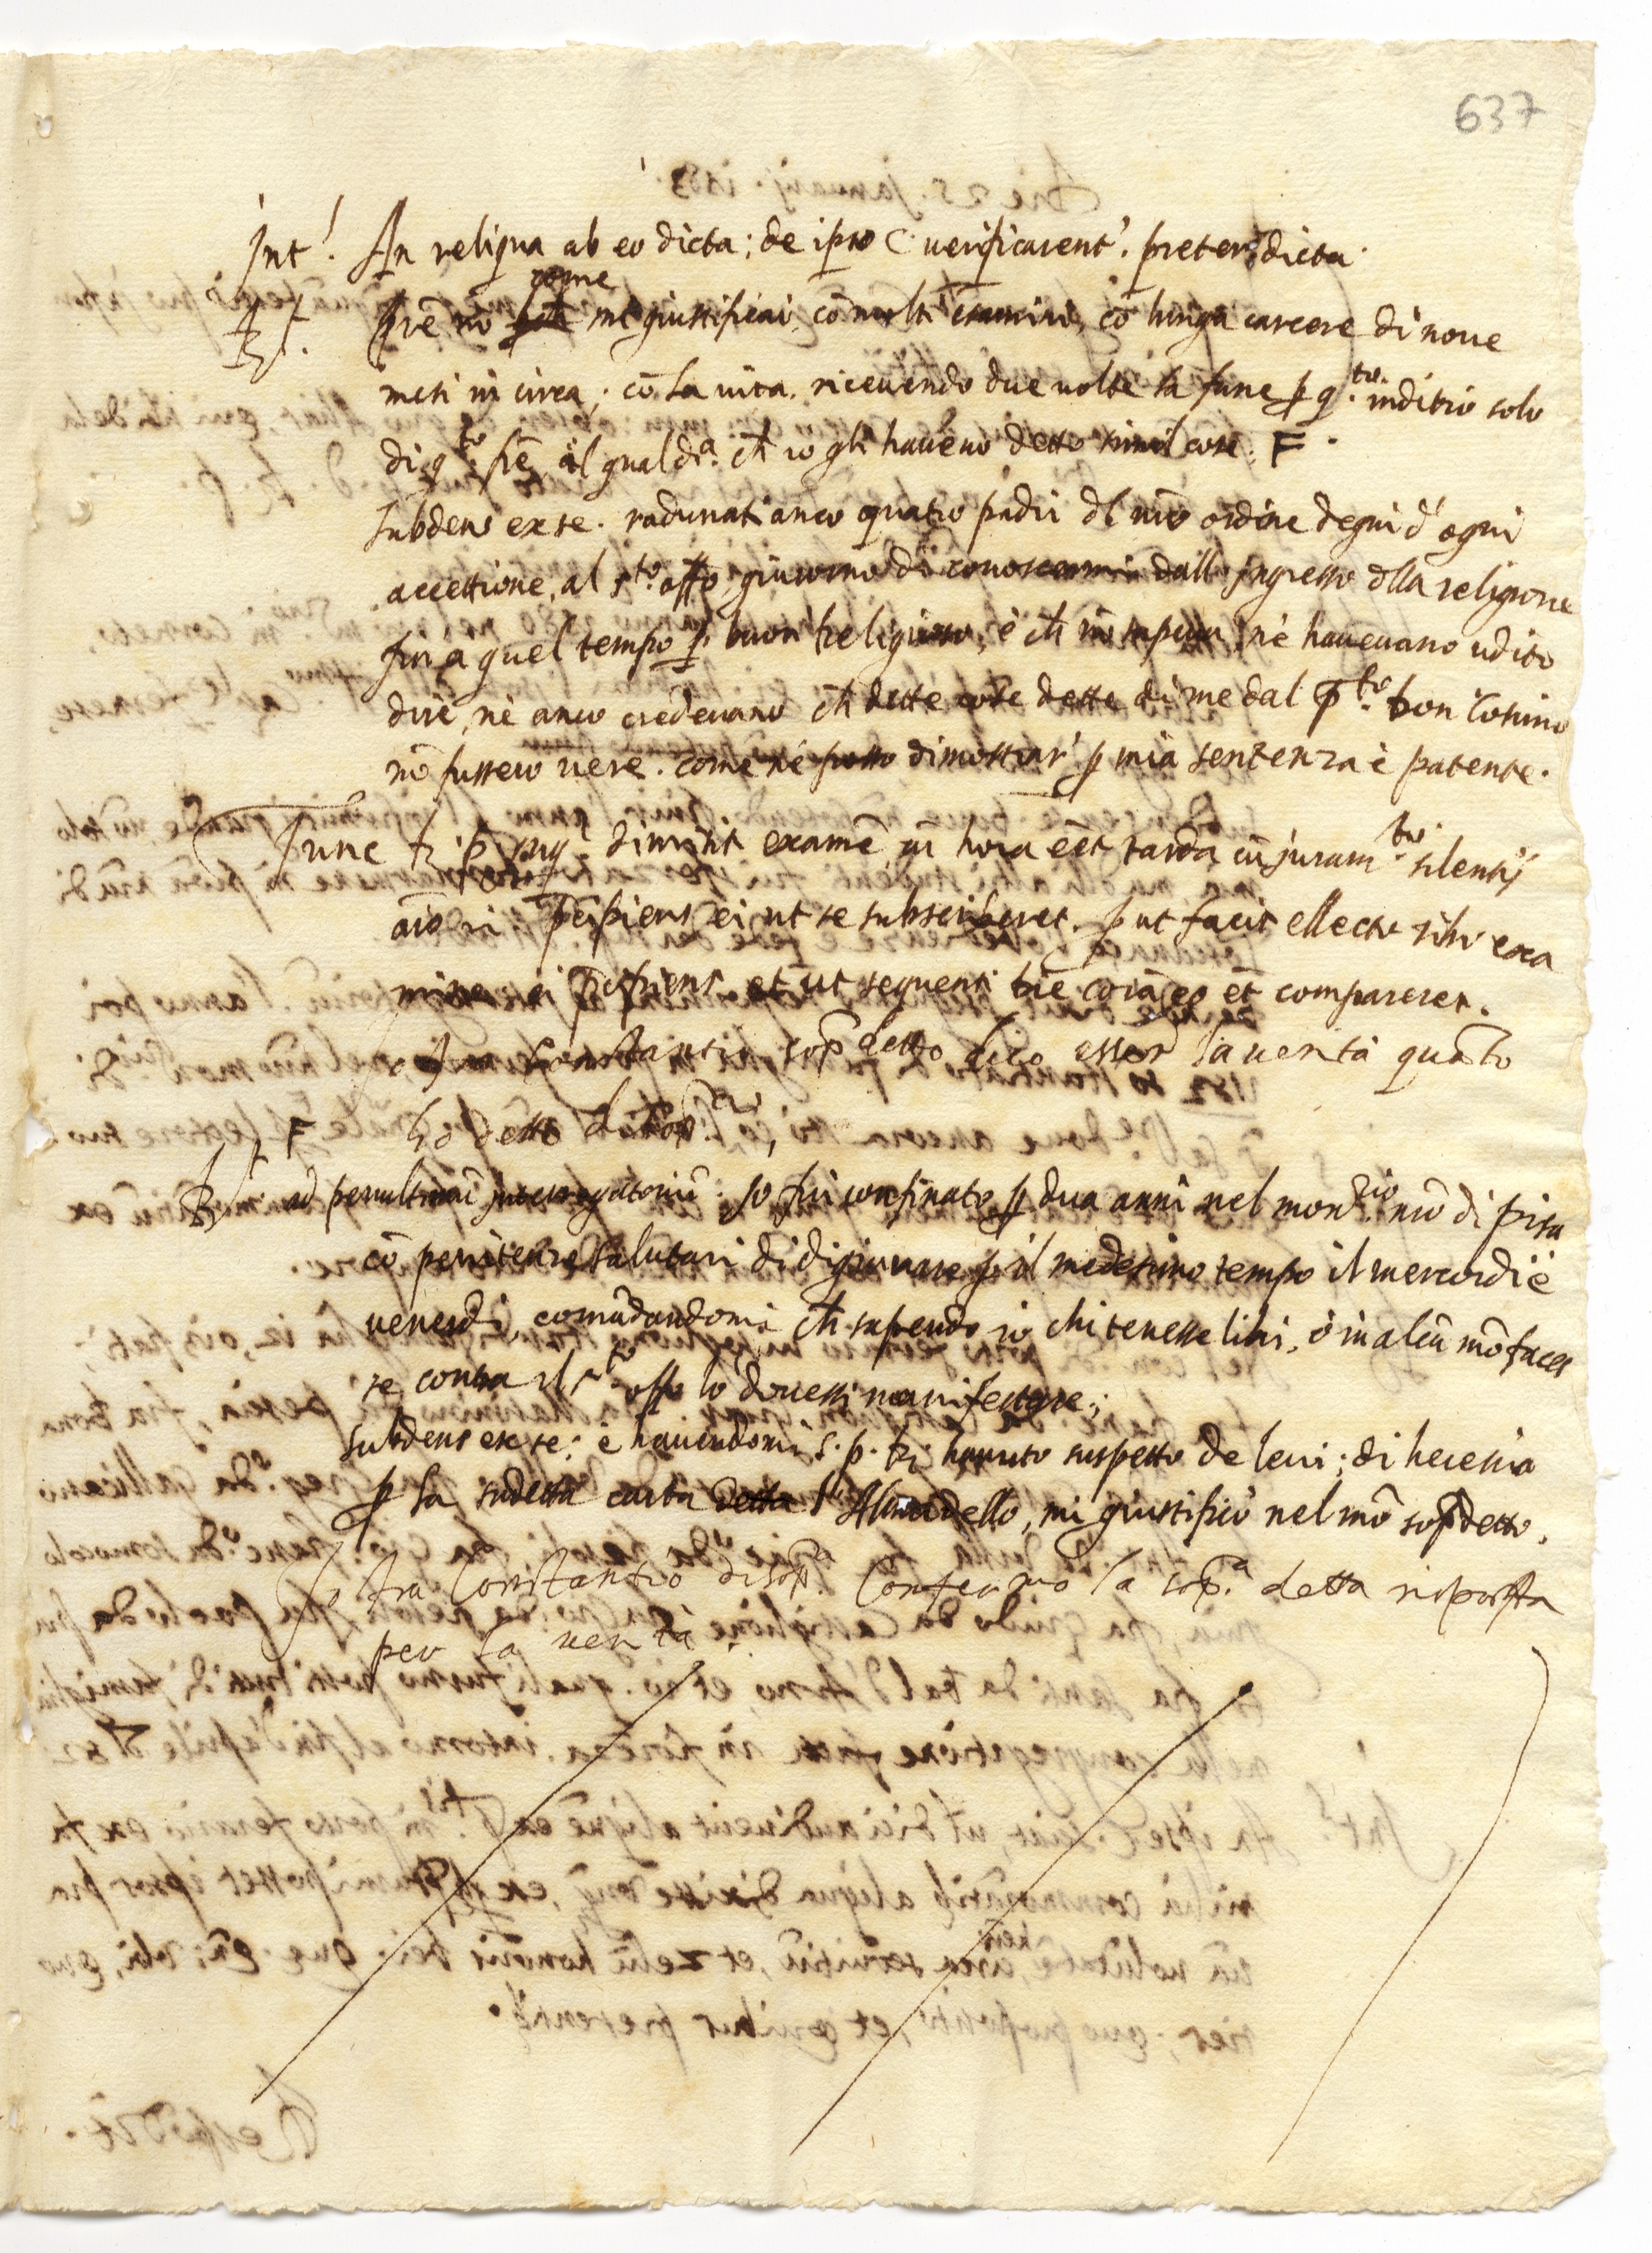 637
Int.! An reliqua ab eo dicta; de ipso C. verificarent'. preter dicta.
come
R.t. no mi giustificai, cō molti esamini, cō lunga carcere di nove
mesi in circa; cō la vita. ricevendo due volte la fune p q.to inditio solo
di q.to frē il qual d.a ch̄ io gli havevo detto simil cose. F.
subdens ex se. radunati anco quatro padri dl nrō ordine degni d'ogni
accettione, al s.to offo giurorno di conoscermi dallo ingresso dlla religione
fin a quel tempo p buon religioso, è ch̄ nō sapeva, nè havevano udito
dire, nè anco credevano ch̄ dette cose dette di me dal p.to don Cosimo
nō fussero vere. come nè posso dimostrar' p mia sentenza è patente.
Tunc R. P. Inq.r dimisit examē, cū hora eēt tarda cū juram.to silentij
precipiens ei ut se subscriberet. put facit ellecto sibi exa
mine ei precipiens et ut sequenti die corā eo et compareret.
Io fra Constantio sop detto dico esser la verità quāto
F ho detto di sop.a
R.t ad penultimū interrogatoriū. Io fui confinato p dua anni nel mon.rio nrō di pisa
cō penitenze salutari di digiunare p il medesimo tempo il mercordi è
venerdi, comādandomi ch̄ sapendo io chi tenesse libri, ò in alcū mō faces
se contra il s.to offo lo dovessi manifestare;
subdens ex se; è havendomi S. P. R. havuto suspetto de levi; di heresia
p la sudetta carta detta l'Almadello, mi giustificò nel mō sop detto.
Io fra Constantio di sop.a Confermo la sop.a detta risposta
per la verità.